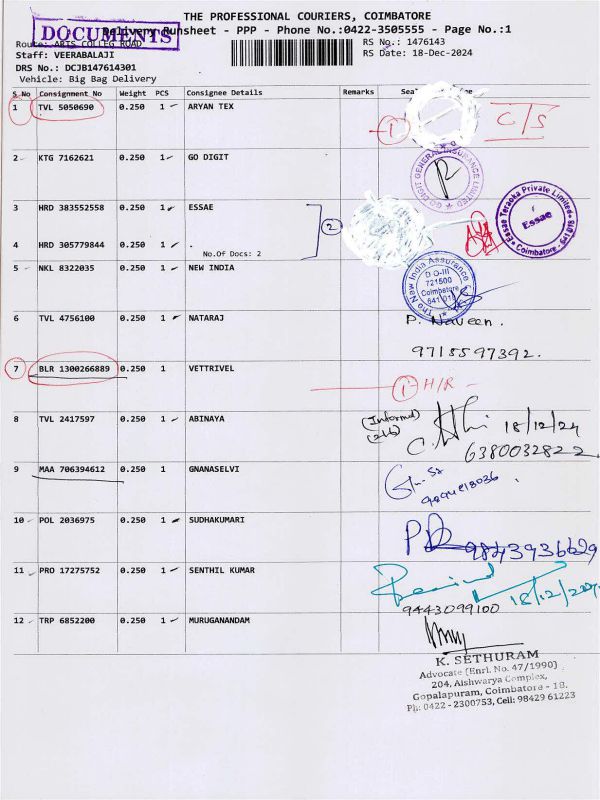 THE PROFESSIONAL COURIERS, COIMBATORE
DOCUMENTS
Delivery Runsheet - PPP - Phone No.:0422-3505555 - Page No.:1
Route: ARTS COLLEG ROAD
RS No.: 1476143
Staff: VEERABALAJI
RS Date: 18-Dec-2024
DRS No.: DCJB147614301
Vehicle: Big Bag Delivery
S No Consignment No Weight PCS Consignee Details Remarks
1 TVL 5050690 0.250 1 ARYAN TEX
1 C/S
2 KTG 7162621 0.250 1 GO DIGIT
GO DIGIT GENERAL INSURANCE LIMITED
3 HRD 383552558 0.250 1 ESSAE
2
Essae Teraoka Private Limited
Essae
Coimbatore - 641 018
4 HRD 305779844 0.250 1 .
No.Of Docs: 2
5 NKL 8322035 0.250 1 NEW INDIA
The New India Assurance
D O-III
721500
Coimbatore
641 018
6 TVL 4756100 0.250 1 NATARAJ
P. Naveen.
9715597392.
7 BLR 1300266889 0.250 1 VETTRIVEL
1 H/R
8 TVL 2417597 0.250 1 ABINAYA
(Informed)
18/12/24
6380032822
9 MAA 706394612 0.250 1 GNANASELVI
10 POL 2036975 0.250 1 SUDHAKUMARI
9843936629
11 PRO 17275752 0.250 1 SENTHIL KUMAR
9443099100
12 TRP 6852200 0.250 1 MURUGANANDAM
K. SETHURAM
Advocate (Enrl. No. 47/1990)
204, Aishwarya Complex,
Gopalapuram, Coimbatore - 18.
Ph: 0422 - 2300753, Cell: 98429 61223